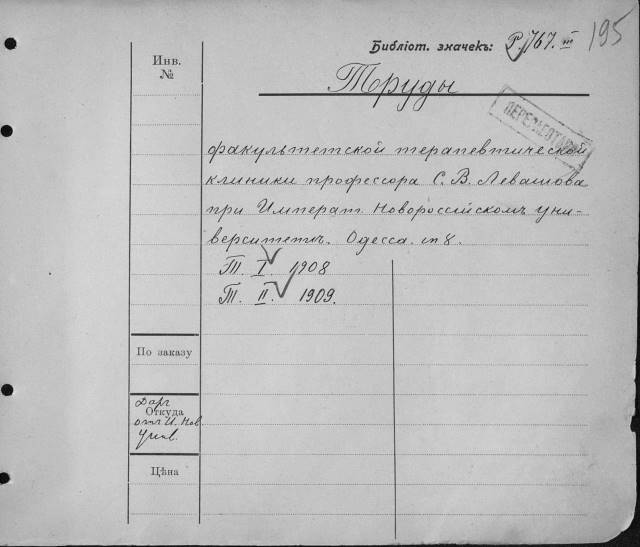 195
Библіот. значекъ: Р. 1767. III
Инв.
№
Труды
ПЕРЕМЕЩЕНО
факультетской терапевтической
клиники профессора С. В. Левашова
при Императ. Новороссійскомъ уни-
верситетѣ. Одесса. in 8.
Т. I. 1908
Т. II. 1909.
По заказу
Даръ
Откуда
отъ И. Нов.
Унив.
Цѣна